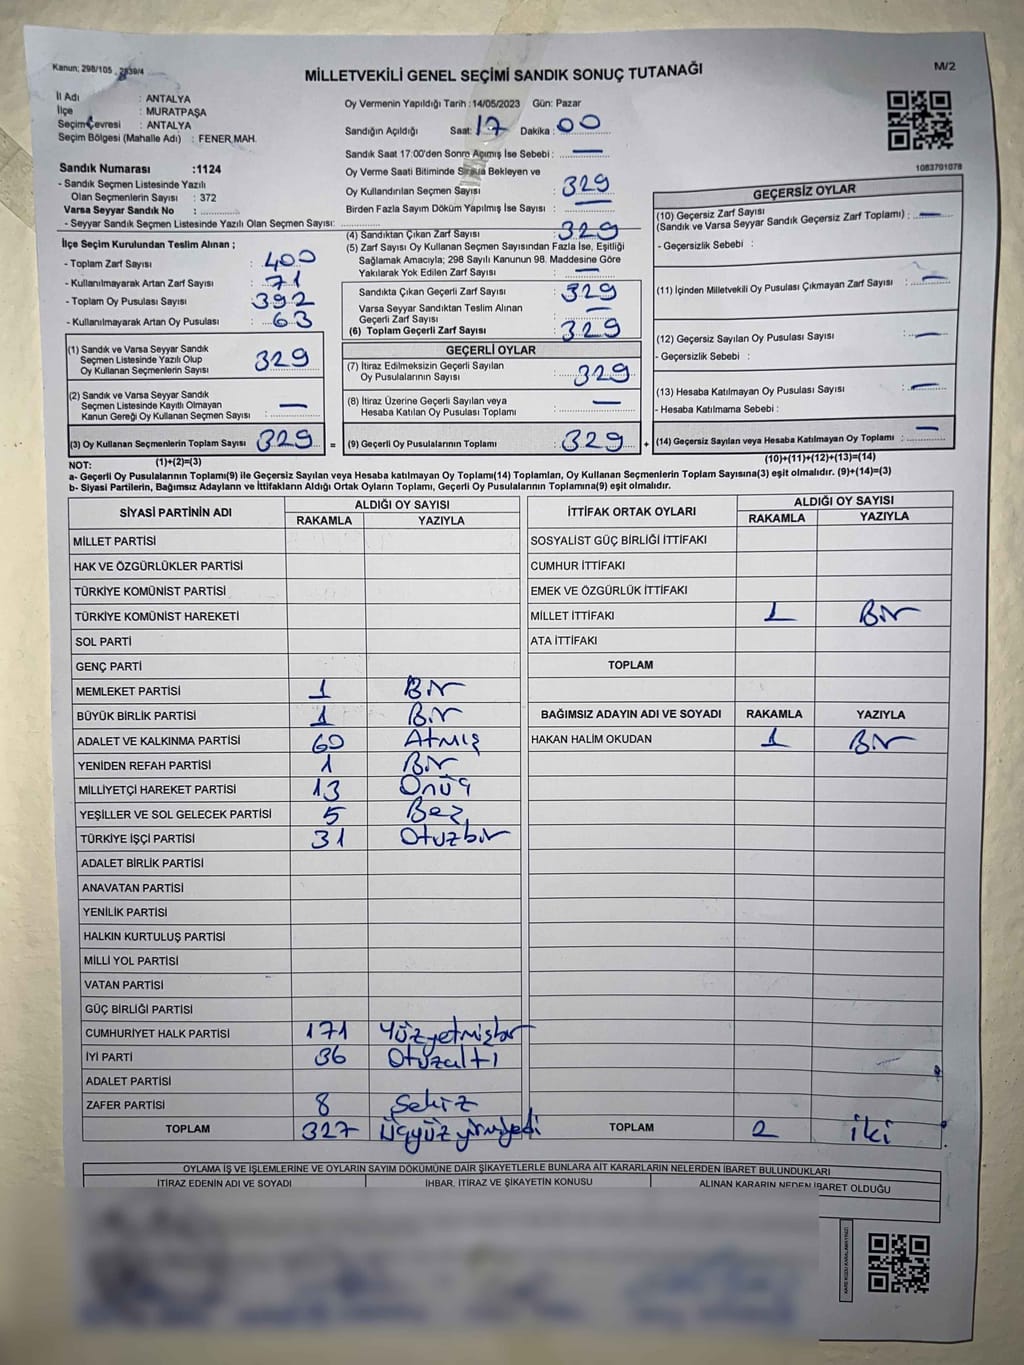 Kanun; 298/105 , 2839/4
MİLLETVEKİLİ GENEL SEÇİMİ SANDIK SONUÇ TUTANAĞI
M/2
İl Adı : ANTALYA
İlçe : MURATPAŞA
Seçim Çevresi : ANTALYA
Seçim Bölgesi (Mahalle Adı) : FENER MAH.
Sandık Numarası :1124
- Sandık Seçmen Listesinde Yazılı
Olan Seçmenlerin Sayısı : 372
Varsa Seyyar Sandık No : ............
- Seyyar Sandık Seçmen Listesinde Yazılı Olan Seçmen Sayısı: ............
İlçe Seçim Kurulundan Teslim Alınan ;
- Toplam Zarf Sayısı : 400
- Kullanılmayarak Artan Zarf Sayısı : 71
- Toplam Oy Pusulası Sayısı : 392
- Kullanılmayarak Artan Oy Pusulası : 63
(1) Sandık ve Varsa Seyyar Sandık
Seçmen Listesinde Yazılı Olup
Oy Kullanan Seçmenlerin Sayısı : 329
(2) Sandık ve Varsa Seyyar Sandık
Seçmen Listesinde Kayıtlı Olmayan
Kanun Gereği Oy Kullanan Seçmen Sayısı : —
(3) Oy Kullanan Seçmenlerin Toplam Sayısı : 329 =
(1)+(2)=(3)
Oy Vermenin Yapıldığı Tarih : 14/05/2023 Gün: Pazar
Sandığın Açıldığı Saat: 17 Dakika : 00
Sandık Saat 17:00'den Sonra Açılmış İse Sebebi : —
Oy Verme Saati Bitiminde Sırada Bekleyen ve
Oy Kullandırılan Seçmen Sayısı : 329
Birden Fazla Sayım Döküm Yapılmış İse Sayısı : —
(4) Sandıktan Çıkan Zarf Sayısı : 329
(5) Zarf Sayısı Oy Kullanan Seçmen Sayısından Fazla İse, Eşitliği
Sağlamak Amacıyla; 298 Sayılı Kanunun 98. Maddesine Göre
Yakılarak Yok Edilen Zarf Sayısı : —
Sandıkta Çıkan Geçerli Zarf Sayısı : 329
Varsa Seyyar Sandıktan Teslim Alınan
Geçerli Zarf Sayısı : —
(6) Toplam Geçerli Zarf Sayısı : 329
GEÇERLİ OYLAR
(7) İtiraz Edilmeksizin Geçerli Sayılan
Oy Pusulalarının Sayısı : 329
(8) İtiraz Üzerine Geçerli Sayılan veya
Hesaba Katılan Oy Pusulası Toplamı : —
(9) Geçerli Oy Pusulalarının Toplamı : 329 +
1083701078
GEÇERSİZ OYLAR
(10) Geçersiz Zarf Sayısı
(Sandık ve Varsa Seyyar Sandık Geçersiz Zarf Toplamı) : —
- Geçersizlik Sebebi :
(11) İçinden Milletvekili Oy Pusulası Çıkmayan Zarf Sayısı : —
(12) Geçersiz Sayılan Oy Pusula Sayısı : —
- Geçersizlik Sebebi :
(13) Hesaba Katılmayan Oy Pusulası Sayısı : —
- Hesaba Katılmama Sebebi :
(14) Geçersiz Sayılan veya Hesaba Katılmayan Oy Toplamı : —
(10)+(11)+(12)+(13)=(14)
NOT:
a- Geçerli Oy Pusulalarının Toplamı(9) ile Geçersiz Sayılan veya Hesaba katılmayan Oy Toplamı(14) Toplamları, Oy Kullanan Seçmenlerin Toplam Sayısına(3) eşit olmalıdır. (9)+(14)=(3)
b- Siyasi Partilerin, Bağımsız Adayların ve İttifakların Aldığı Ortak Oyların Toplamı, Geçerli Oy Pusulalarının Toplamına(9) eşit olmalıdır.
SİYASİ PARTİNİN ADI ALDIĞI OY SAYISI
RAKAMLA YAZIYLA
MİLLET PARTİSİ
HAK VE ÖZGÜRLÜKLER PARTİSİ
TÜRKİYE KOMÜNİST PARTİSİ
TÜRKİYE KOMÜNİST HAREKETİ
SOL PARTİ
GENÇ PARTİ
MEMLEKET PARTİSİ 1 Bir
BÜYÜK BİRLİK PARTİSİ 1 Bir
ADALET VE KALKINMA PARTİSİ 60 Atmış
YENİDEN REFAH PARTİSİ 1 Bir
MİLLİYETÇİ HAREKET PARTİSİ 13 Onüç
YEŞİLLER VE SOL GELECEK PARTİSİ 5 Beş
TÜRKİYE İŞÇİ PARTİSİ 31 Otuzbir
ADALET BİRLİK PARTİSİ
ANAVATAN PARTİSİ
YENİLİK PARTİSİ
HALKIN KURTULUŞ PARTİSİ
MİLLİ YOL PARTİSİ
VATAN PARTİSİ
GÜÇ BİRLİĞİ PARTİSİ
CUMHURİYET HALK PARTİSİ 171 Yüzyetmişbir
İYİ PARTİ 36 Otuzaltı
ADALET PARTİSİ
ZAFER PARTİSİ 8 Sekiz
TOPLAM 327 Üçyüz yirmiyedi
İTTİFAK ORTAK OYLARI ALDIĞI OY SAYISI
RAKAMLA YAZIYLA
SOSYALİST GÜÇ BİRLİĞİ İTTİFAKI
CUMHUR İTTİFAKI
EMEK VE ÖZGÜRLÜK İTTİFAKI
MİLLET İTTİFAKI 1 Bir
ATA İTTİFAKI
TOPLAM
BAĞIMSIZ ADAYIN ADI VE SOYADI RAKAMLA YAZIYLA
HAKAN HALİM OKUDAN 1 Bir
TOPLAM 2 iki
OYLAMA İŞ VE İŞLEMLERİNE VE OYLARIN SAYIM DÖKÜMÜNE DAİR ŞİKAYETLERLE BUNLARA AİT KARARLARIN NELERDEN İBARET BULUNDUKLARI
İTİRAZ EDENİN ADI VE SOYADI İHBAR, İTİRAZ VE ŞİKAYETİN KONUSU ALINAN KARARIN NEDEN İBARET OLDUĞU